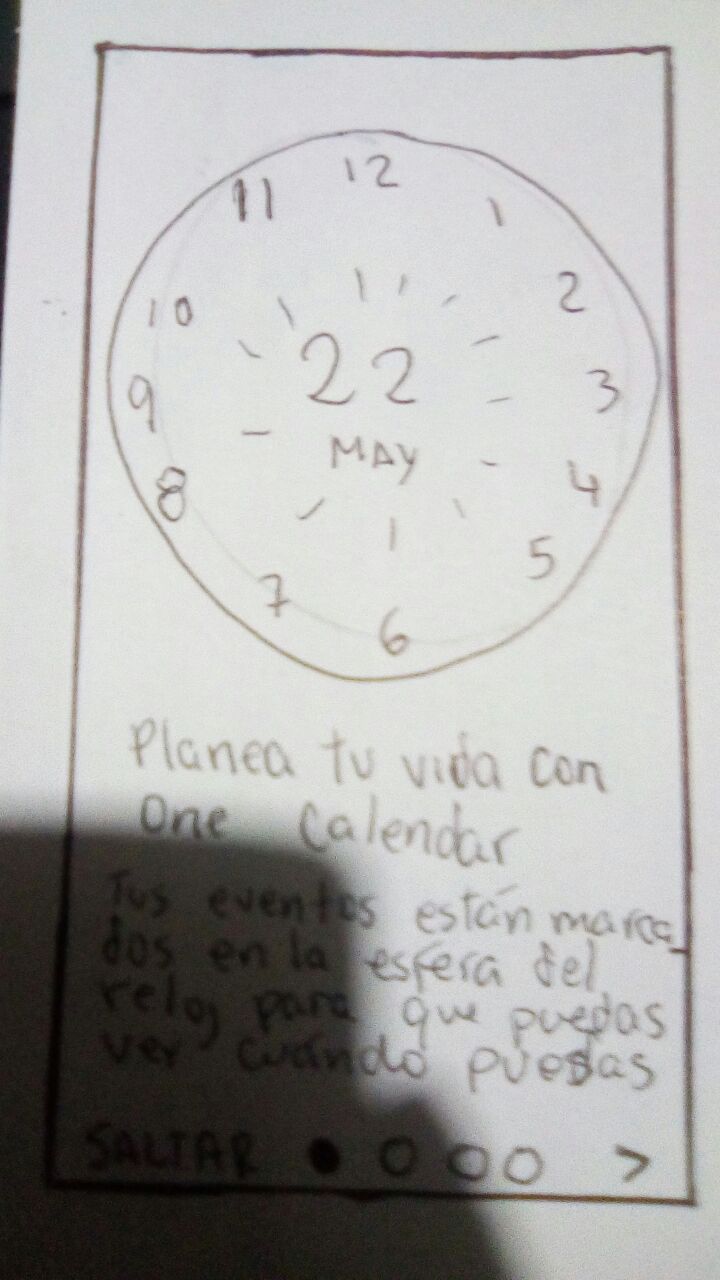 12
11
1
10
2
22
9
3
MAY
8
4
5
7
6
Planea tu vida con
One Calendar
Tus eventos están marca_
dos en la esfera del
reloj para que puedas
ver cuándo puedas
SALTAR >